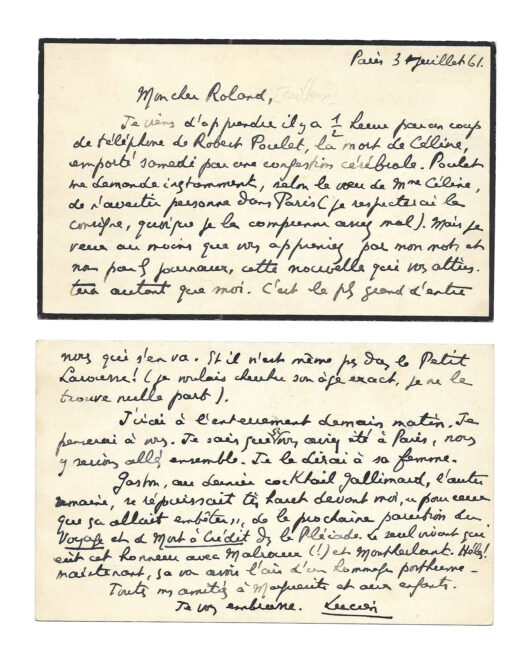 Paris 3 Juillet 61.
Mon cher Roland,
Je viens d'apprendre il y a 1/2 heure par un coup
de téléphone de Robert Poulet, la mort de Céline,
emporté samedi par une congestion cérébrale. Poulet
me demande instamment, selon le vœu de Mme Céline,
de n'avertir personne dans Paris (je respecterai la
consigne, quoique je la comprenne assez mal). Mais je
veux au moins que vos appreniez par mon mot et
non par ls journaux, cette nouvelle qui vos attris-
tera autant que moi. C'est le pls grand d'entre
nous qui s'en va. Et il n'est même ps ds le Petit
Larousse! (je voulais chercher son âge exact, je ne le
trouve nulle part).
J'irai à l'enterrement demain matin. Je
penserai à vos. Je sais que si vos aviez été à Paris, nous
y serions allés ensemble. Je le dirai à sa femme.
Gaston, au dernier cocktail Gallimard, l'autre
semaine, se réjouissait ts haut devant moi, "pour ceux
que ça allait embêter", de la prochaine parution du
Voyage et de Mort à Crédit ds la Pléiade. Le seul vivant qui
eût cet honneur avec Malraux (!) et Montherlant. Hélas!
maintenant, ça va avoir l'air d'un hommage posthume —
Toutes ms amitiés à Marguerite et aux enfants.
Je vos embrasse. Lucien